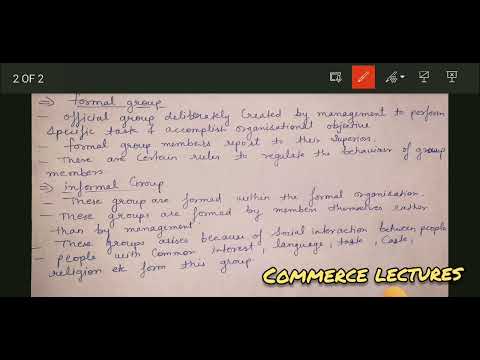 2 OF 2
⇒ Formal group
– Official group deliberately created by management to perform
specific task & accomplish organisational objective
– formal group members report to their superior.
– There are certain rules to regulate the behaviour of group
members.
⇒ informal Group
– These group are formed within the formal organisation.
– These groups are formed by members themselves rather
than by management
– These groups arises because of social interaction between people
– people with Common interest, language, taste, caste,
religion etc form this group.
COMMERCE LECTURES